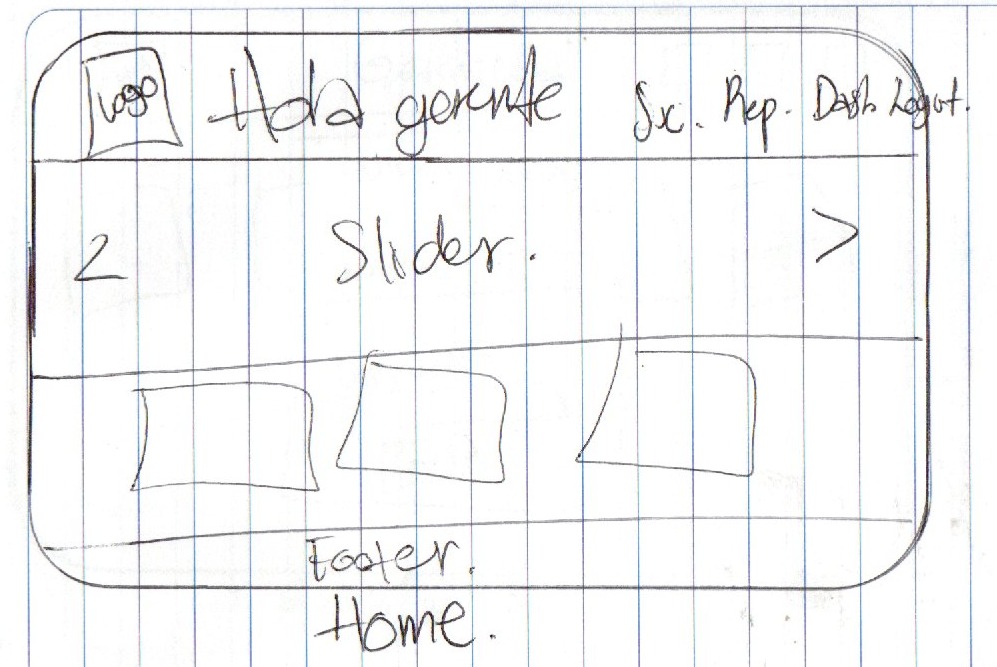 Logo Hola gerente Sx. Rep. Dash Logut.
< Slider. >
Footer.
Home.